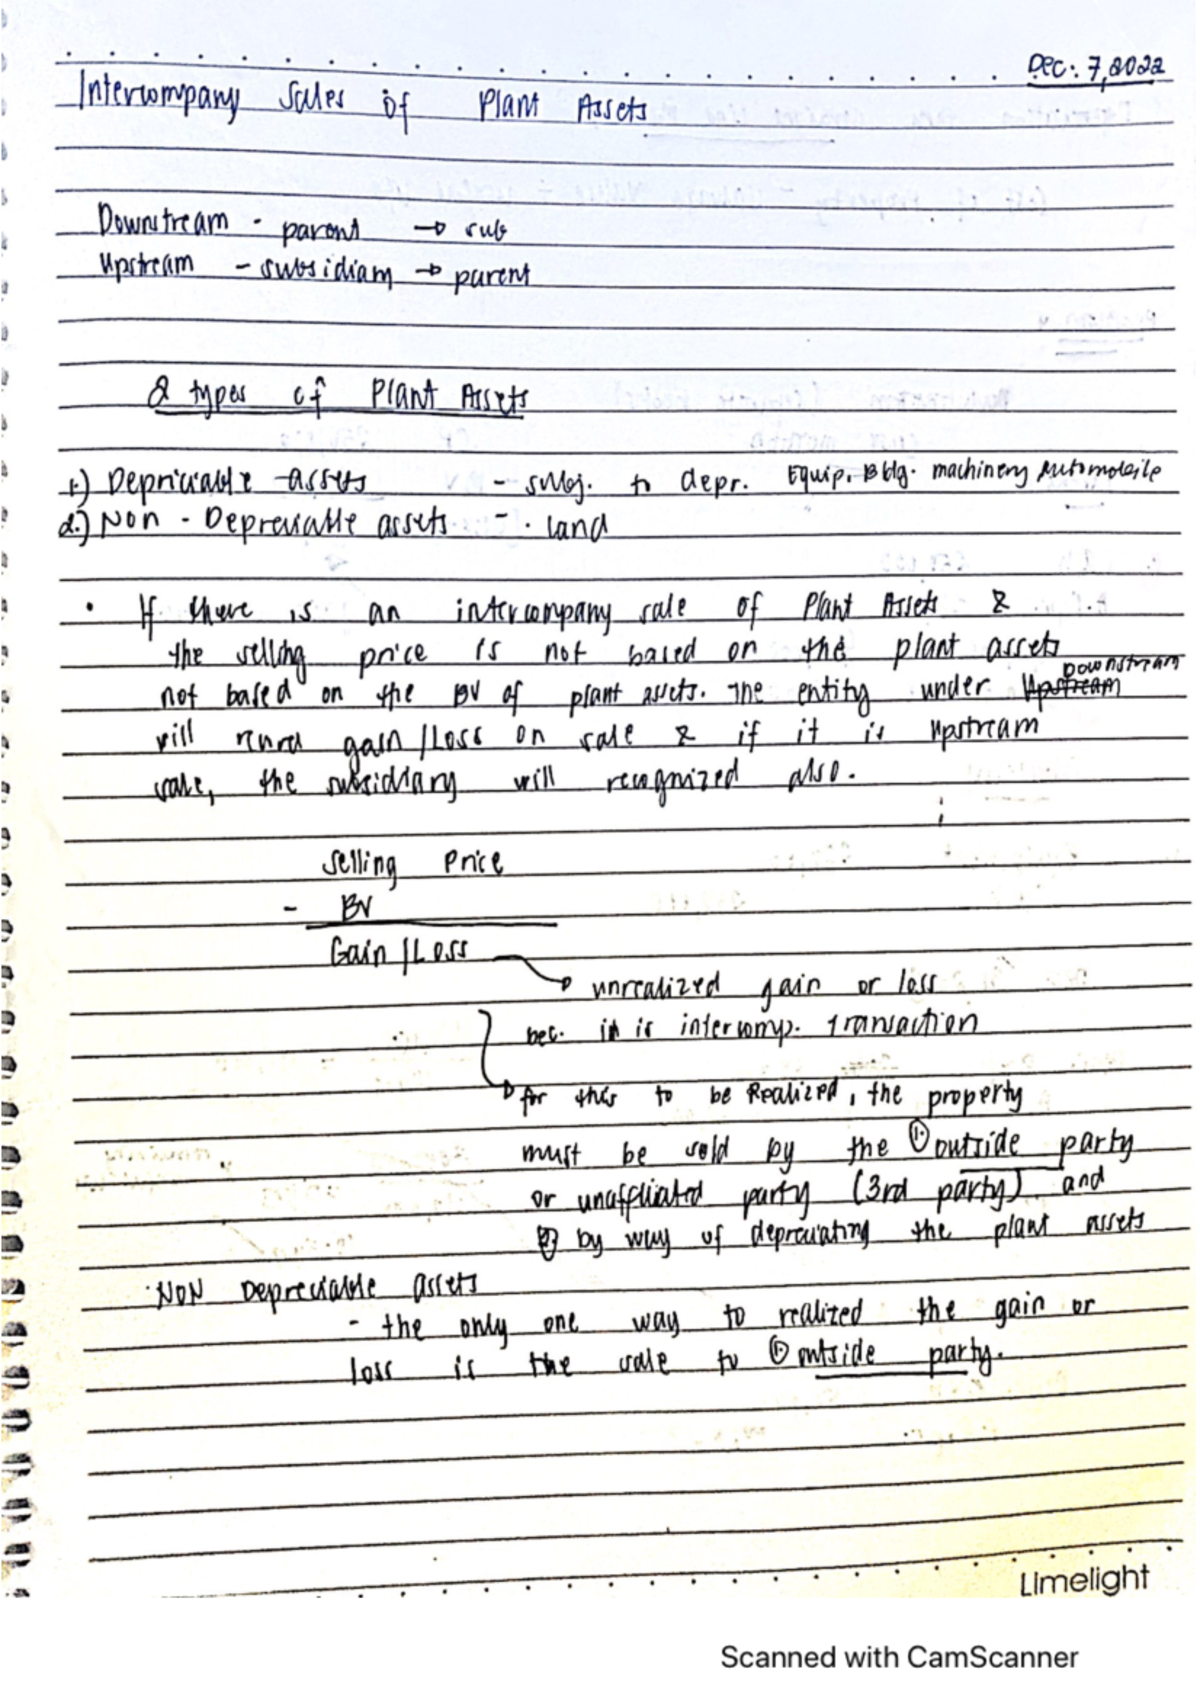 Dec. 7, 2022
Intercompany Sales of Plant Assets
Downstream - parent → sub
Upstream - subsidiary → parent
2 types of Plant Assets
1.) Depriciable assets - subj. to depr. Equip. Bldg. machinery Automobile
2.) Non - Depreciable assets - . land
• If there is an intercompany sale of Plant Assets &
the selling price is not based on the plant assets
Downstream
not based on the BV of plant assets. The entity under Upstream
will record gain /Loss on sale & if it is Upstream
sale, the subsidiary will recognized also.
Selling Price
- BV
Gain / Loss
→ unrealized gain or loss
bec. it is intercomp. transaction
→ for this to be Realized, the property
must be sold by the ① outside party
or unaffliated party (3rd party) and
② by way of depreciating the plant assets
· NON Depreciable assets
- the only one way to realized the gain or
loss is the sale to ① outside party.
Limelight
Scanned with CamScanner